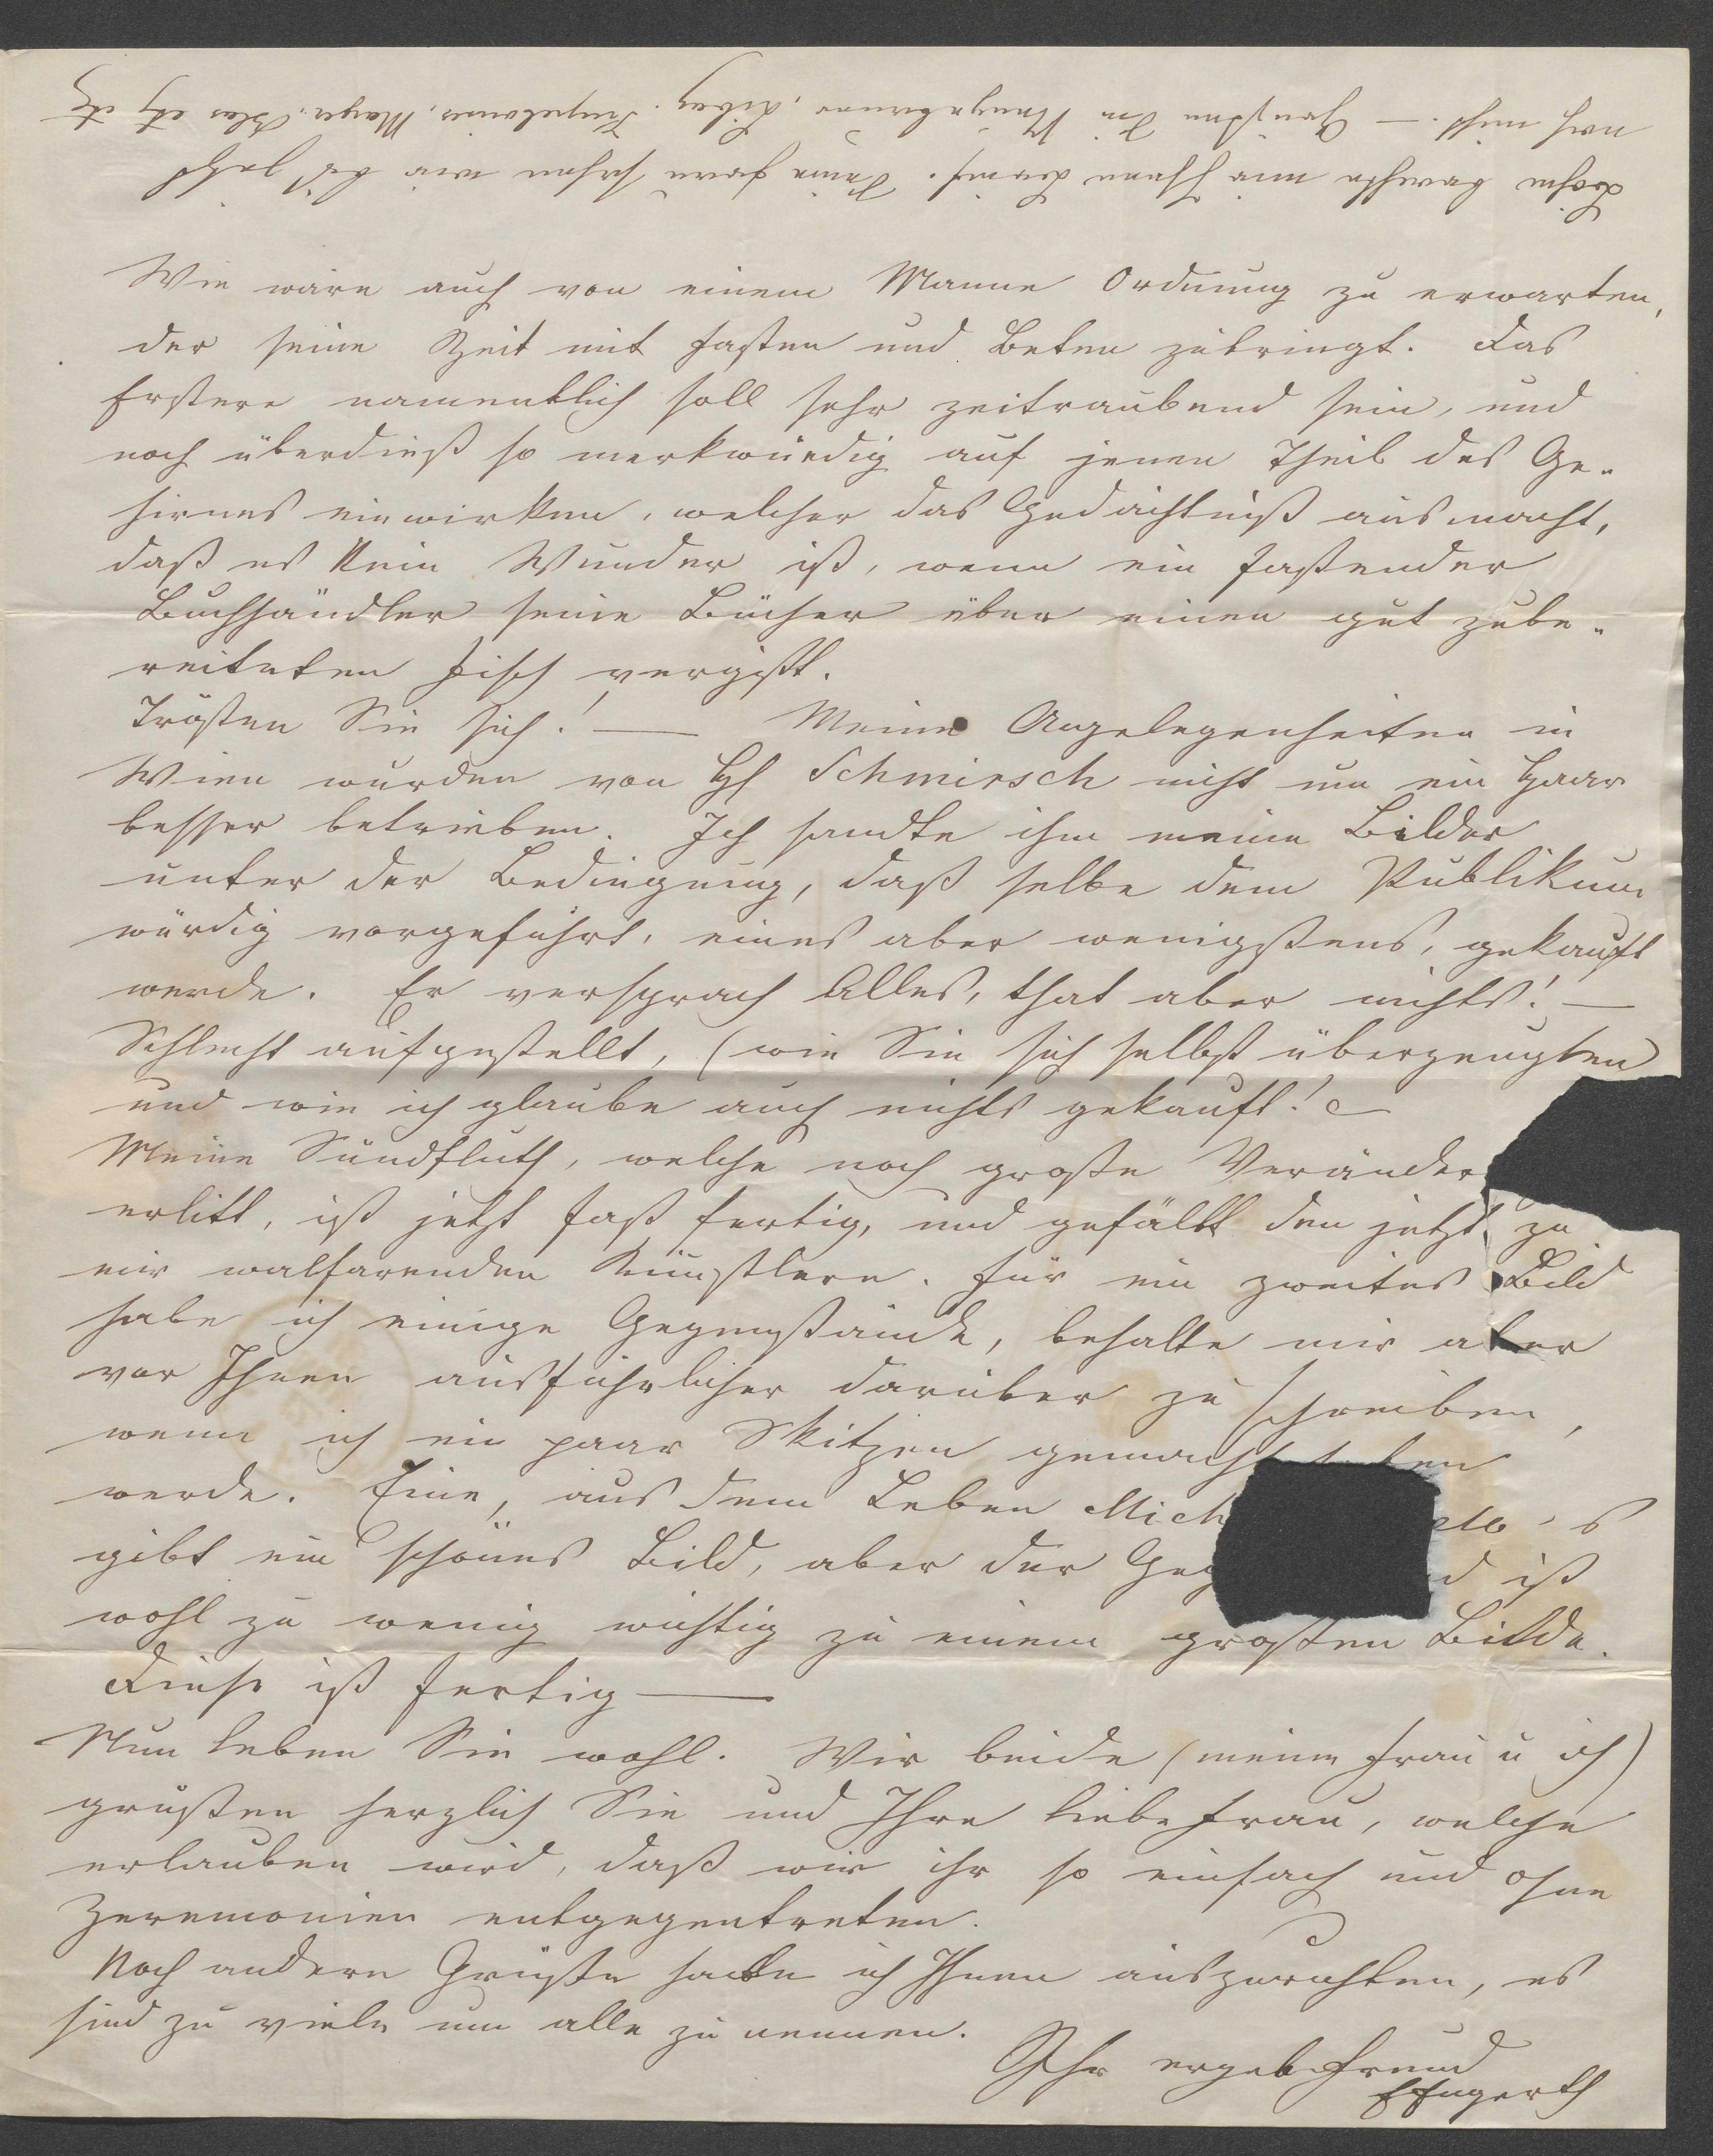 Wie wäre auch von einem Manne Ordnung zu erwarten,
der seine Zeit mit Fasten und Beten zubringt. Das
Erstere namentlich soll sehr zeitraubend sein, und
noch überdieß so merkwürdig auf jenen Theil des Ge-
hirnes einwirken, welcher das Gedächtniß ausmacht,
daß es kein Wunder ist, wenn ein fastender
Buchhändler seine Bücher über einen gut zube-
reiteten Fisch vergißt.
Trösten Sie sich! — Meine Angelegenheiten in
Wien wurden von H Schmirsch nicht um ein Haar
besser betrieben. Ich sandte ihm meine Bilder
unter der Bedingung, daß selbe dem Publikum
würdig vorgeführt, eines aber wenigstens, gekauft
werde. Er versprach Alles, that aber nichts! —
Schlecht aufgestellt, (wie Sie sich selbst überzeugten
und wie ich glaube auch nichts gekauft! —
Meine Sündfluth, welche noch große Veränder
erlitt, ist jetzt fast fertig, und gefällt den jetzt zu
mir walfarenden Künstlern. Für ein zweites Bild
habe ich einige Gegenstände, behalte mir aber
vor Ihnen ausführlicher darüber zu schreiben,
wenn ich ein paar Skitzen gemacht haben
werde. Eine, aus dem Leben Mich elo's
gibt ein schönes Bild, aber der Geg d ist
wohl zu wenig wichtig zu einem großen Bilde.
Diese ist fertig —
Nun leben Sie wohl. Wir beide (meine Frau u ich)
grüßen herzlich Sie und Ihre liebe Frau, welche
erlauben wird, daß wir ihr so einfach und ohne
Zeremonien entgegentreten.
Noch andere Grüße habe ich Ihnen auszurichten, es
sind zu viele um alle zu nennen.
Ihr ergeb Freund
Engerth
brachte mir Ihren Brief. Seine Frau sahen wir bis jetzt
noch nicht. — Grüßen Sie Mayer etz etz